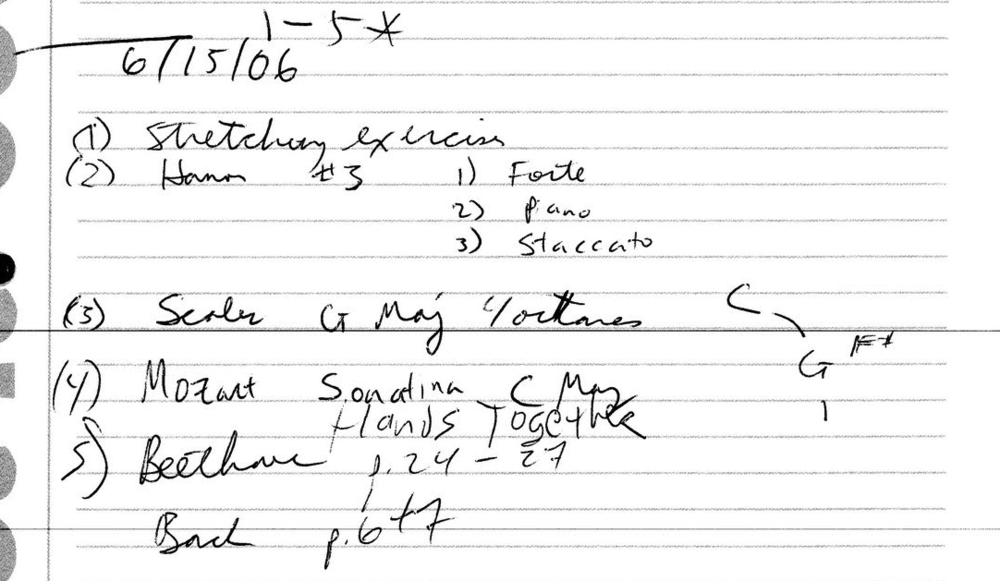 1 - 5 *
6/15/06
(1) Stretching exercises
(2) Hanon #3 1) Forte
2) Piano
3) Staccato
(3) Scales G Maj 4 octaves
C
G F#
1
(4) Mozart Sonatina C Maj
Hands Together
5) Beethoven p. 24 - 27
Bach p. 6 + 7